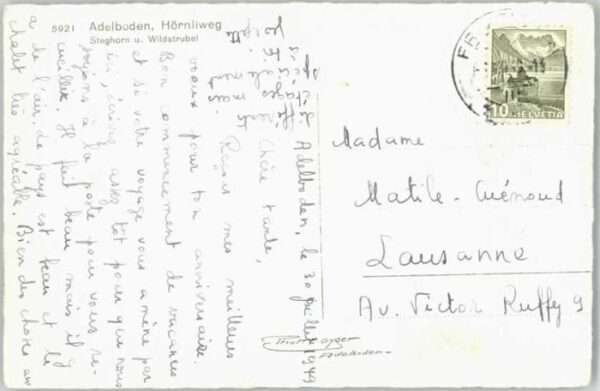 5921 Adelboden, Hörnliweg
Steghorn u. Wildstrubel
Adelboden, le 30 juillet 1949
Chère tante,
Reçois mes meilleurs
voeux pour ton anniversaire.
Bon commencement de vacances
et si votre voyage vous amène par
ici, écrivez assez tôt pour que nous
soyons à la poste pour vous re-
cueillir. Il fait beau mais il y
a de l'air. Le pays est beau et le
chalet très agréable. Bien des choses aux
différents
étages mais
spécialement
à
HELVETIA
10
Madame
Matile-Cuénoud
Lausanne
Av. Victor Ruffy 9
Adelboden